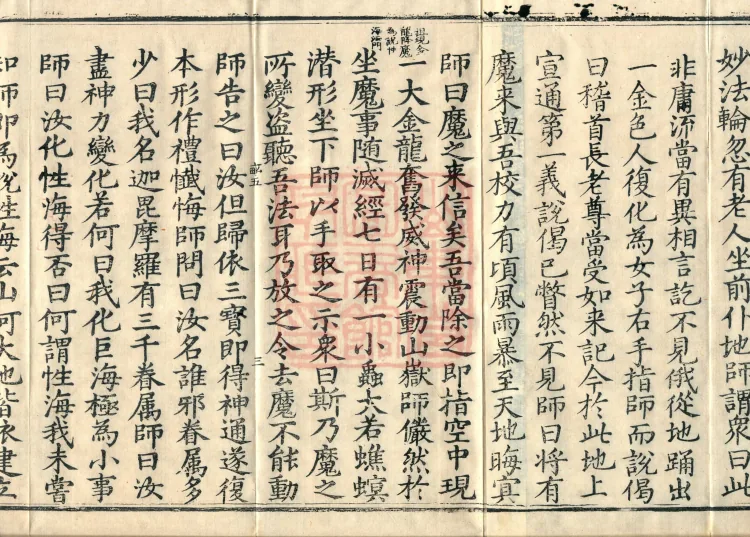 妙法輪忽有老人坐前仆地師謂衆曰此
非庸流當有異相言訖不見俄從地踊出
一金色人復化為女子右手指師而說偈
曰稽首長老尊當受如来記今於此地上
宣通第一義說偈已瞥然不見師曰將有
魔来與吾校力有頃風雨暴至天地晦冥
師曰魔之来信矣吾當除之即指空中現
龍降魔
為說性
一大金龍奮發威神震動山嶽師儼然於
坐魔事随滅經七日有一小蟲大若蟭螟
潛形坐下師以手取之示衆曰斯乃魔之
所變盗聽吾法耳乃放之令去魔不能動
五
三
師告之曰汝但歸依三寶即得神通遂復
本形作禮懺悔師問曰汝名誰邪眷属多
少曰我名迦毘摩羅有三千眷属師曰汝
盡神力變化若何曰我化巨海極為小事
師曰汝化性海得否曰何謂性海我未嘗
知師即為說性海云山河大地皆依建立